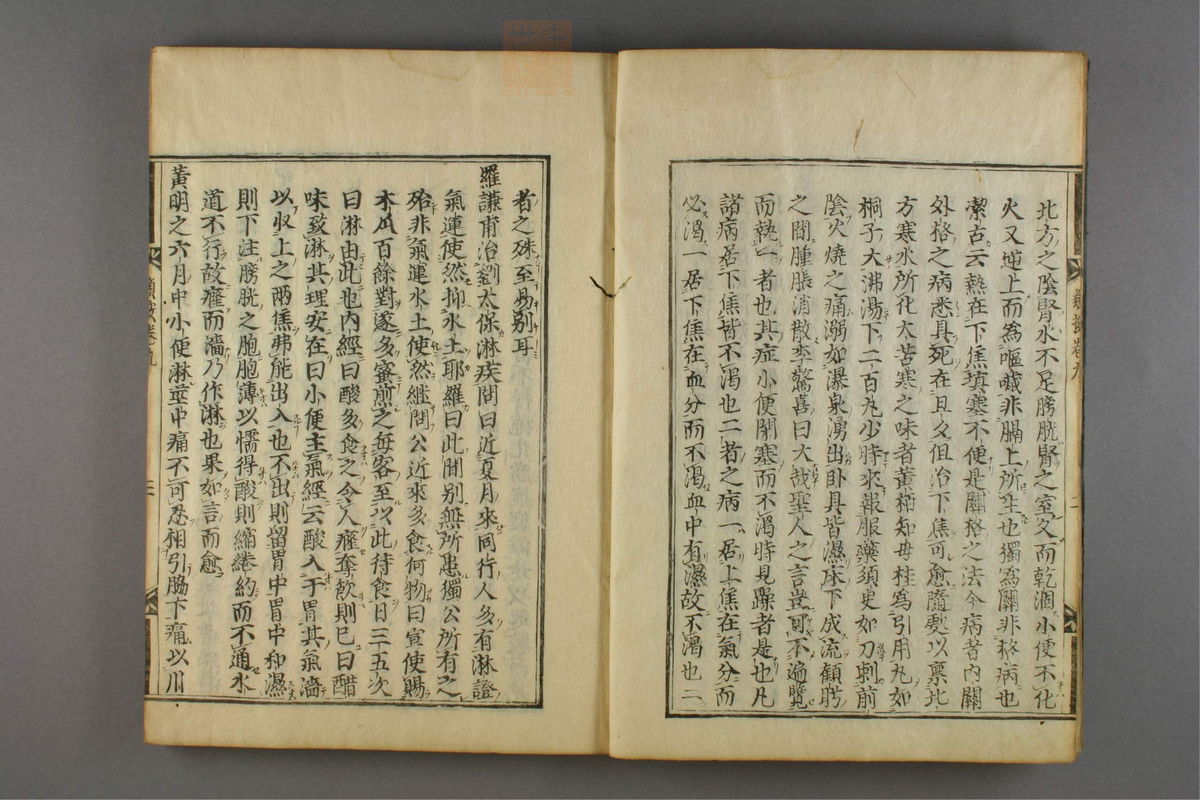 北方之陰腎水不足膀胱腎之室久而乾涸小便不化
火又逆上而爲嘔噦非膈上所生也獨爲關非格病也
潔古云熱在下焦填塞不便是關格之法今病者内關
外格之病悉具死在旦夕但治下焦可愈隨處以禀北
方寒水所化大苦寒之味者黄栢知母桂爲引用丸如
桐子大沸湯下二百丸少時來報服藥須臾如刀刺前
陰火燒之痛溺如瀑泉湧出卧具皆濕床下成流顧盻
之間腫脹消散李驚喜曰大哉聖人之言豈可不遍覽
而執一者也其症小便閉塞而不渴時見躁者是也凡
諸病居下焦皆不渴也二者之病一居上焦在氣分而
必渴一居下焦在血分而不渴血中有濕故不渴也二
類按卷九
者之殊至易别耳
羅謙甫治劉太保淋疾問曰近夏月來同行人多有淋證
氣運使然抑水土耶羅曰此間别無所患獨公所有之
殆非氣運水土使然繼問公近來多食何物曰宣使賜
木瓜百餘對遂多蜜煎之每客至以此待食日三五次
曰淋由此也内經曰酸多食之令人癃奪飲則已曰醋
味致淋其理安在曰小便主氣經云酸入于胃其氣濇
以收上之兩焦弗能出入也不出則留胃中胃中和濕
則下注膀胱之胞胞薄以懦得酸則縮綣約而不通水
道不行故癃而濇乃作淋也果如言而愈
黄明之六月中小便淋莖中痛不可忍相引脇下痛以川